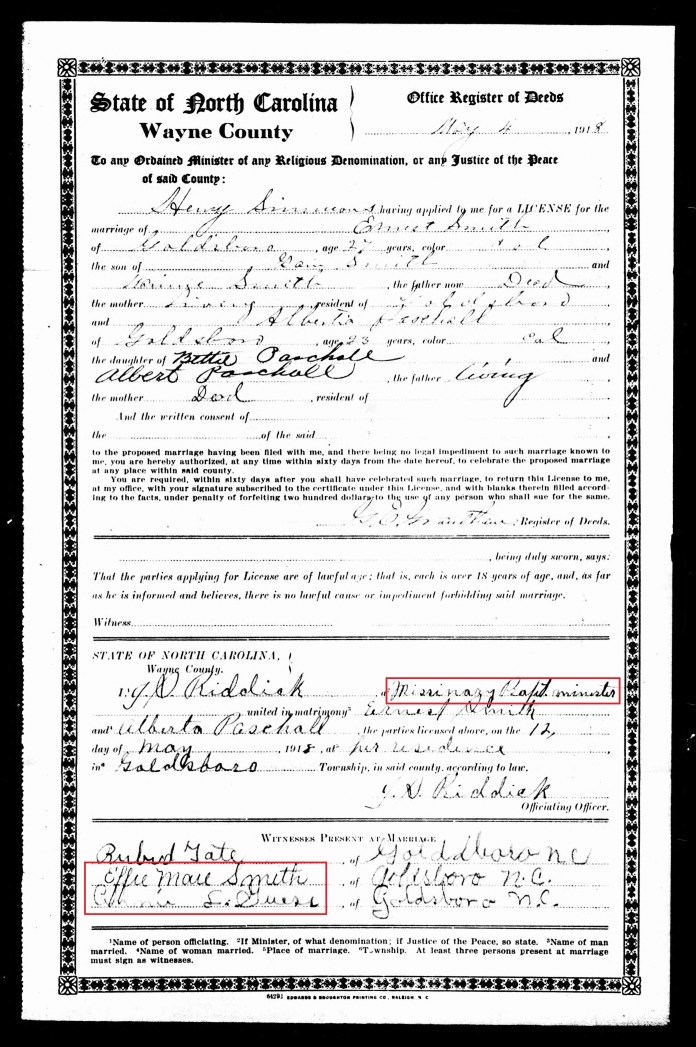 State of North Carolina
Wayne County
Office Register of Deeds
May 4, 1918
To any Ordained Minister of any Religious Denomination, or any Justice of the Peace
of said County:
Henry Simmons, having applied to me for a LICENSE for the
marriage of Ernest Smith
of Goldsboro, age 27 years, color Col
the son of Smith and
Smith, the father now Dead
the mother living, resident of Goldsboro
and Alberta Paschall
of Goldsboro, age 23 years, color Col
the daughter of Bettie Paschall and
Albert Paschall, the father living
the mother Dead, resident of
And the written consent of
the of the said
to the proposed marriage having been filed with me, and there being no legal impediment to such marriage known to
me, you are hereby authorized, at any time within sixty days from the date hereof, to celebrate the proposed marriage
at any place within said county.
You are required, within sixty days after you shall have celebrated such marriage, to return this License to me,
at my office, with your signature subscribed to the certificate under this License, and with blanks therein filled accord-
ing to the facts, under penalty of forfeiting two hundred dollars to the use of any person who shall sue for the same.
Register of Deeds.
, being duly sworn, says:
That the parties applying for License are of lawful age; that is, each is over 18 years of age, and, as far
as he is informed and believes, there is no lawful cause or impediment forbidding said marriage.
Witness
STATE OF NORTH CAROLINA,
Wayne County.
I, Riddick a Missinazy Bapt. minister
united in matrimony³ Ernest Smith
and⁴ Alberta Paschall, the parties licensed above, on the 12,
day of May, 1918, at⁵ her residence
in⁶ Goldsboro Township, in said county, according to law.
Riddick
Officiating Officer.
WITNESSES PRESENT AT MARRIAGE
Tate, of Golddboro NC
Effie Mare Smith, of Goldsboro N.C.
, of Goldsboro N.C.
¹Name of person officiating. ²If Minister, of what denomination; if Justice of the Peace, so state. ³Name of man
married. ⁴Name of woman married. ⁵Place of marriage. ⁶Township. At least three persons present at marriage
must sign as witnesses.
EDWARDS & BROUGHTON PRINTING CO., RALEIGH N C